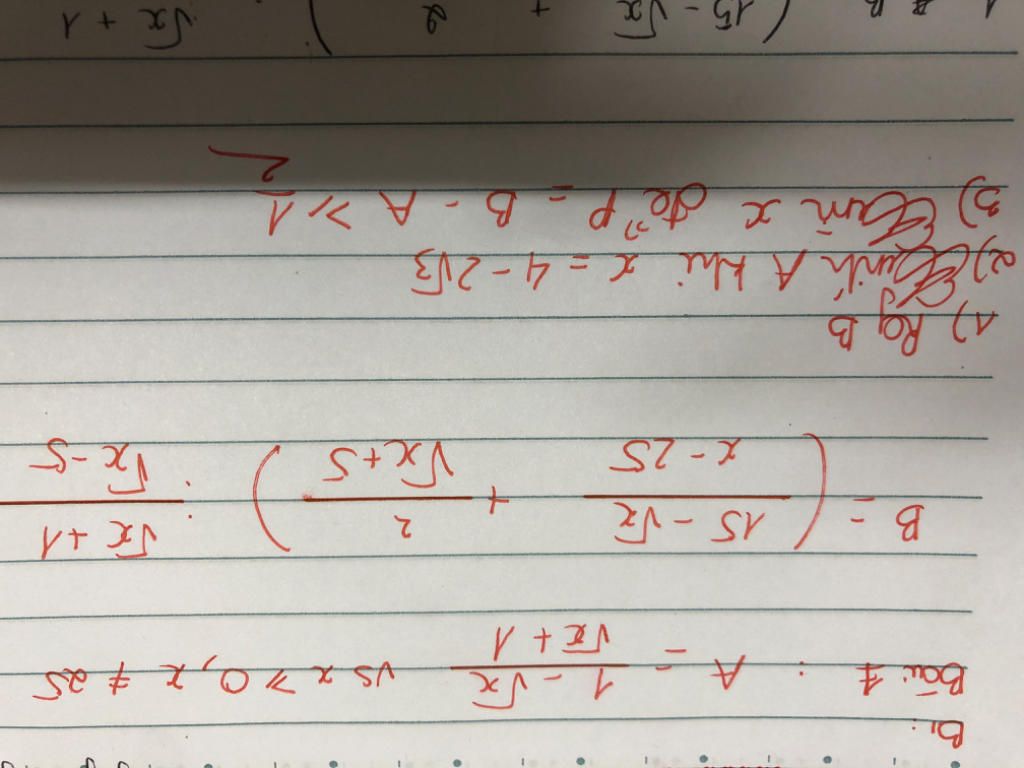 B1:
Bài 1 : A = (1 - √x)/(√x + 1) vs x ≥ 0, x ≠ 25
B = ( (15 - √x)/(x - 25) + 2/(√x + 5) ) : (√x + 1)/(√x - 5)
1) Rg B
2) Tính A khi x = 4 - 2√3
3) Tìm x để P = B - A ≥ 1/2
B ( 15 - √x + 2 ) : √x + 1